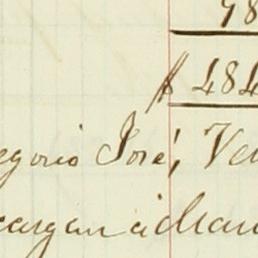 98
$ 484
egorio José, Ve
cargan á Man